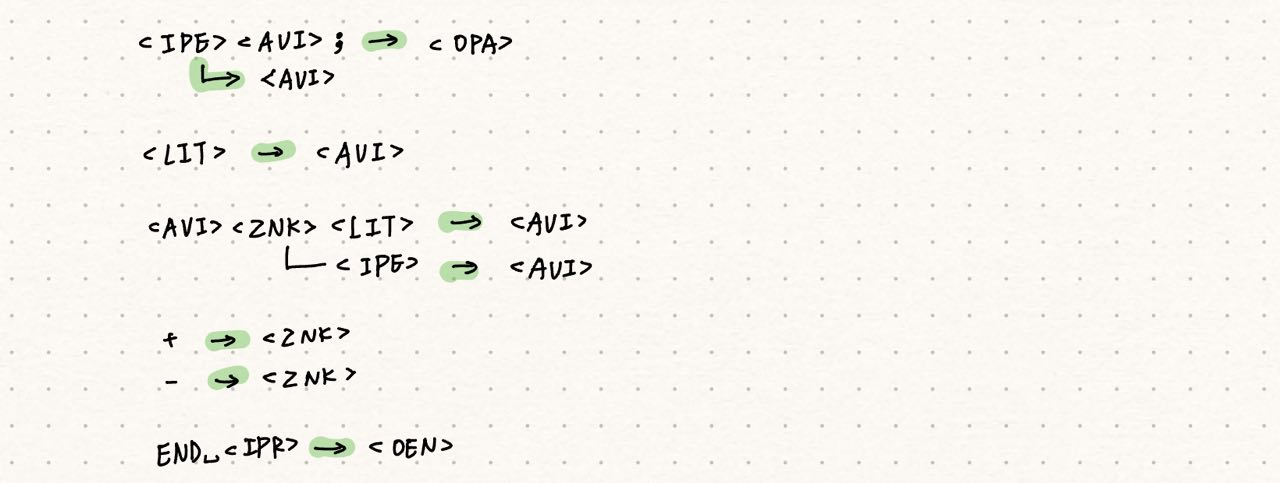 <IPE> <AVI> ; → <OPA>
↳ <AVI>
<LIT> → <AVI>
<AVI> <ZNK> <LIT> → <AVI>
└ <IPE> → <AVI>
+ → <ZNK>
- → <ZNK>
END␣<IPR> → <OEN>